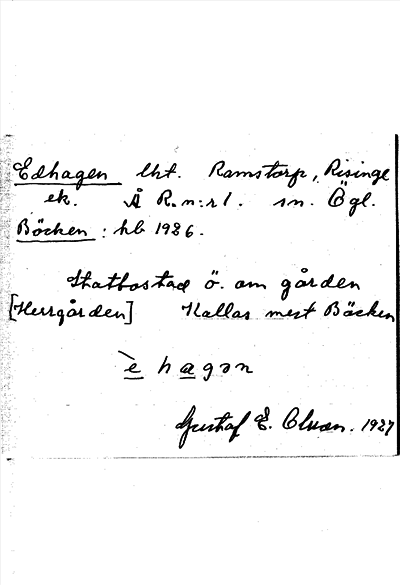 Edhagen lht. Ramstorp, Risinge
ek. Å R.n:r 1. sn. Ögl.
Böcken: hb 1926.
Statbostad ö. om gården
[Herrgården] Kallas mest Böcken
è hagən
Gustaf E. Olsson. 1927